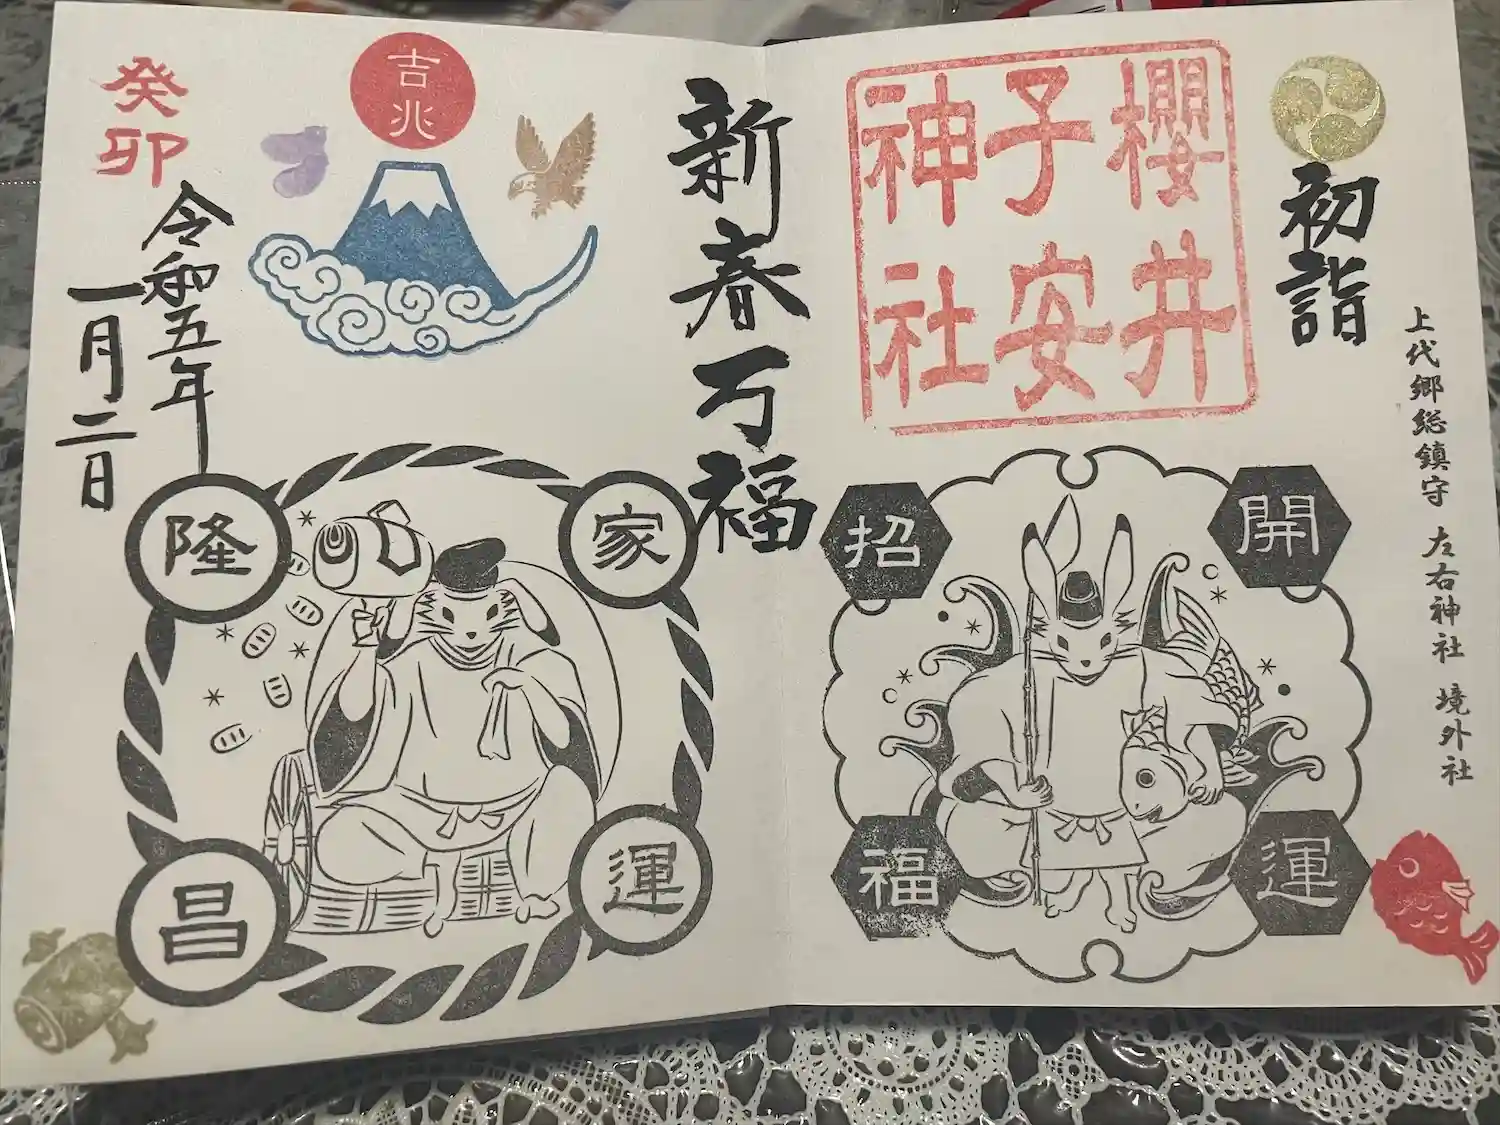 初詣
上代郷総鎮守 左右神社 境外社
櫻井
子安
神社
開運
招福
新春万福
吉兆
家運
隆昌
癸卯
令和五年
一月二日